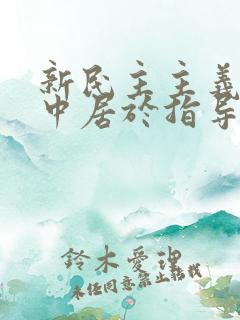 新民主主義
中居於指导
鈴木愛理
未经同意禁止转载